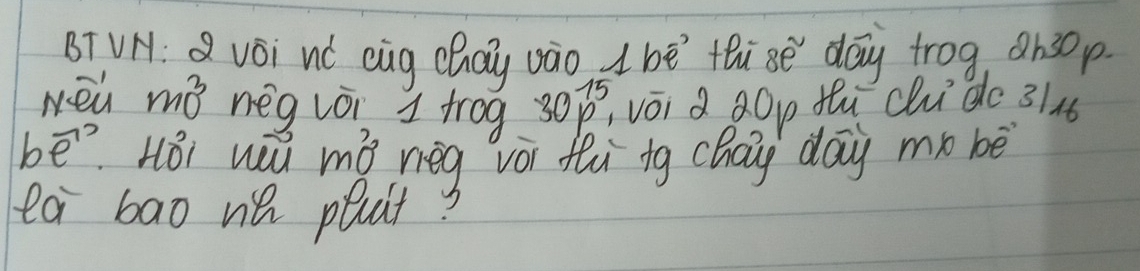 BTVN: 2 vòi nc cùg chảy vào 1 bể thì sẽ đầy trog 2h30p.
Nếu mở riêg vòi 1 trog 30p, 15 vòi 2 20p thì chỉ đc 3/16
bể. Hỏi nếu mở riêg vòi thì tg chảy đầy mỗi bể
là bao nh phút?